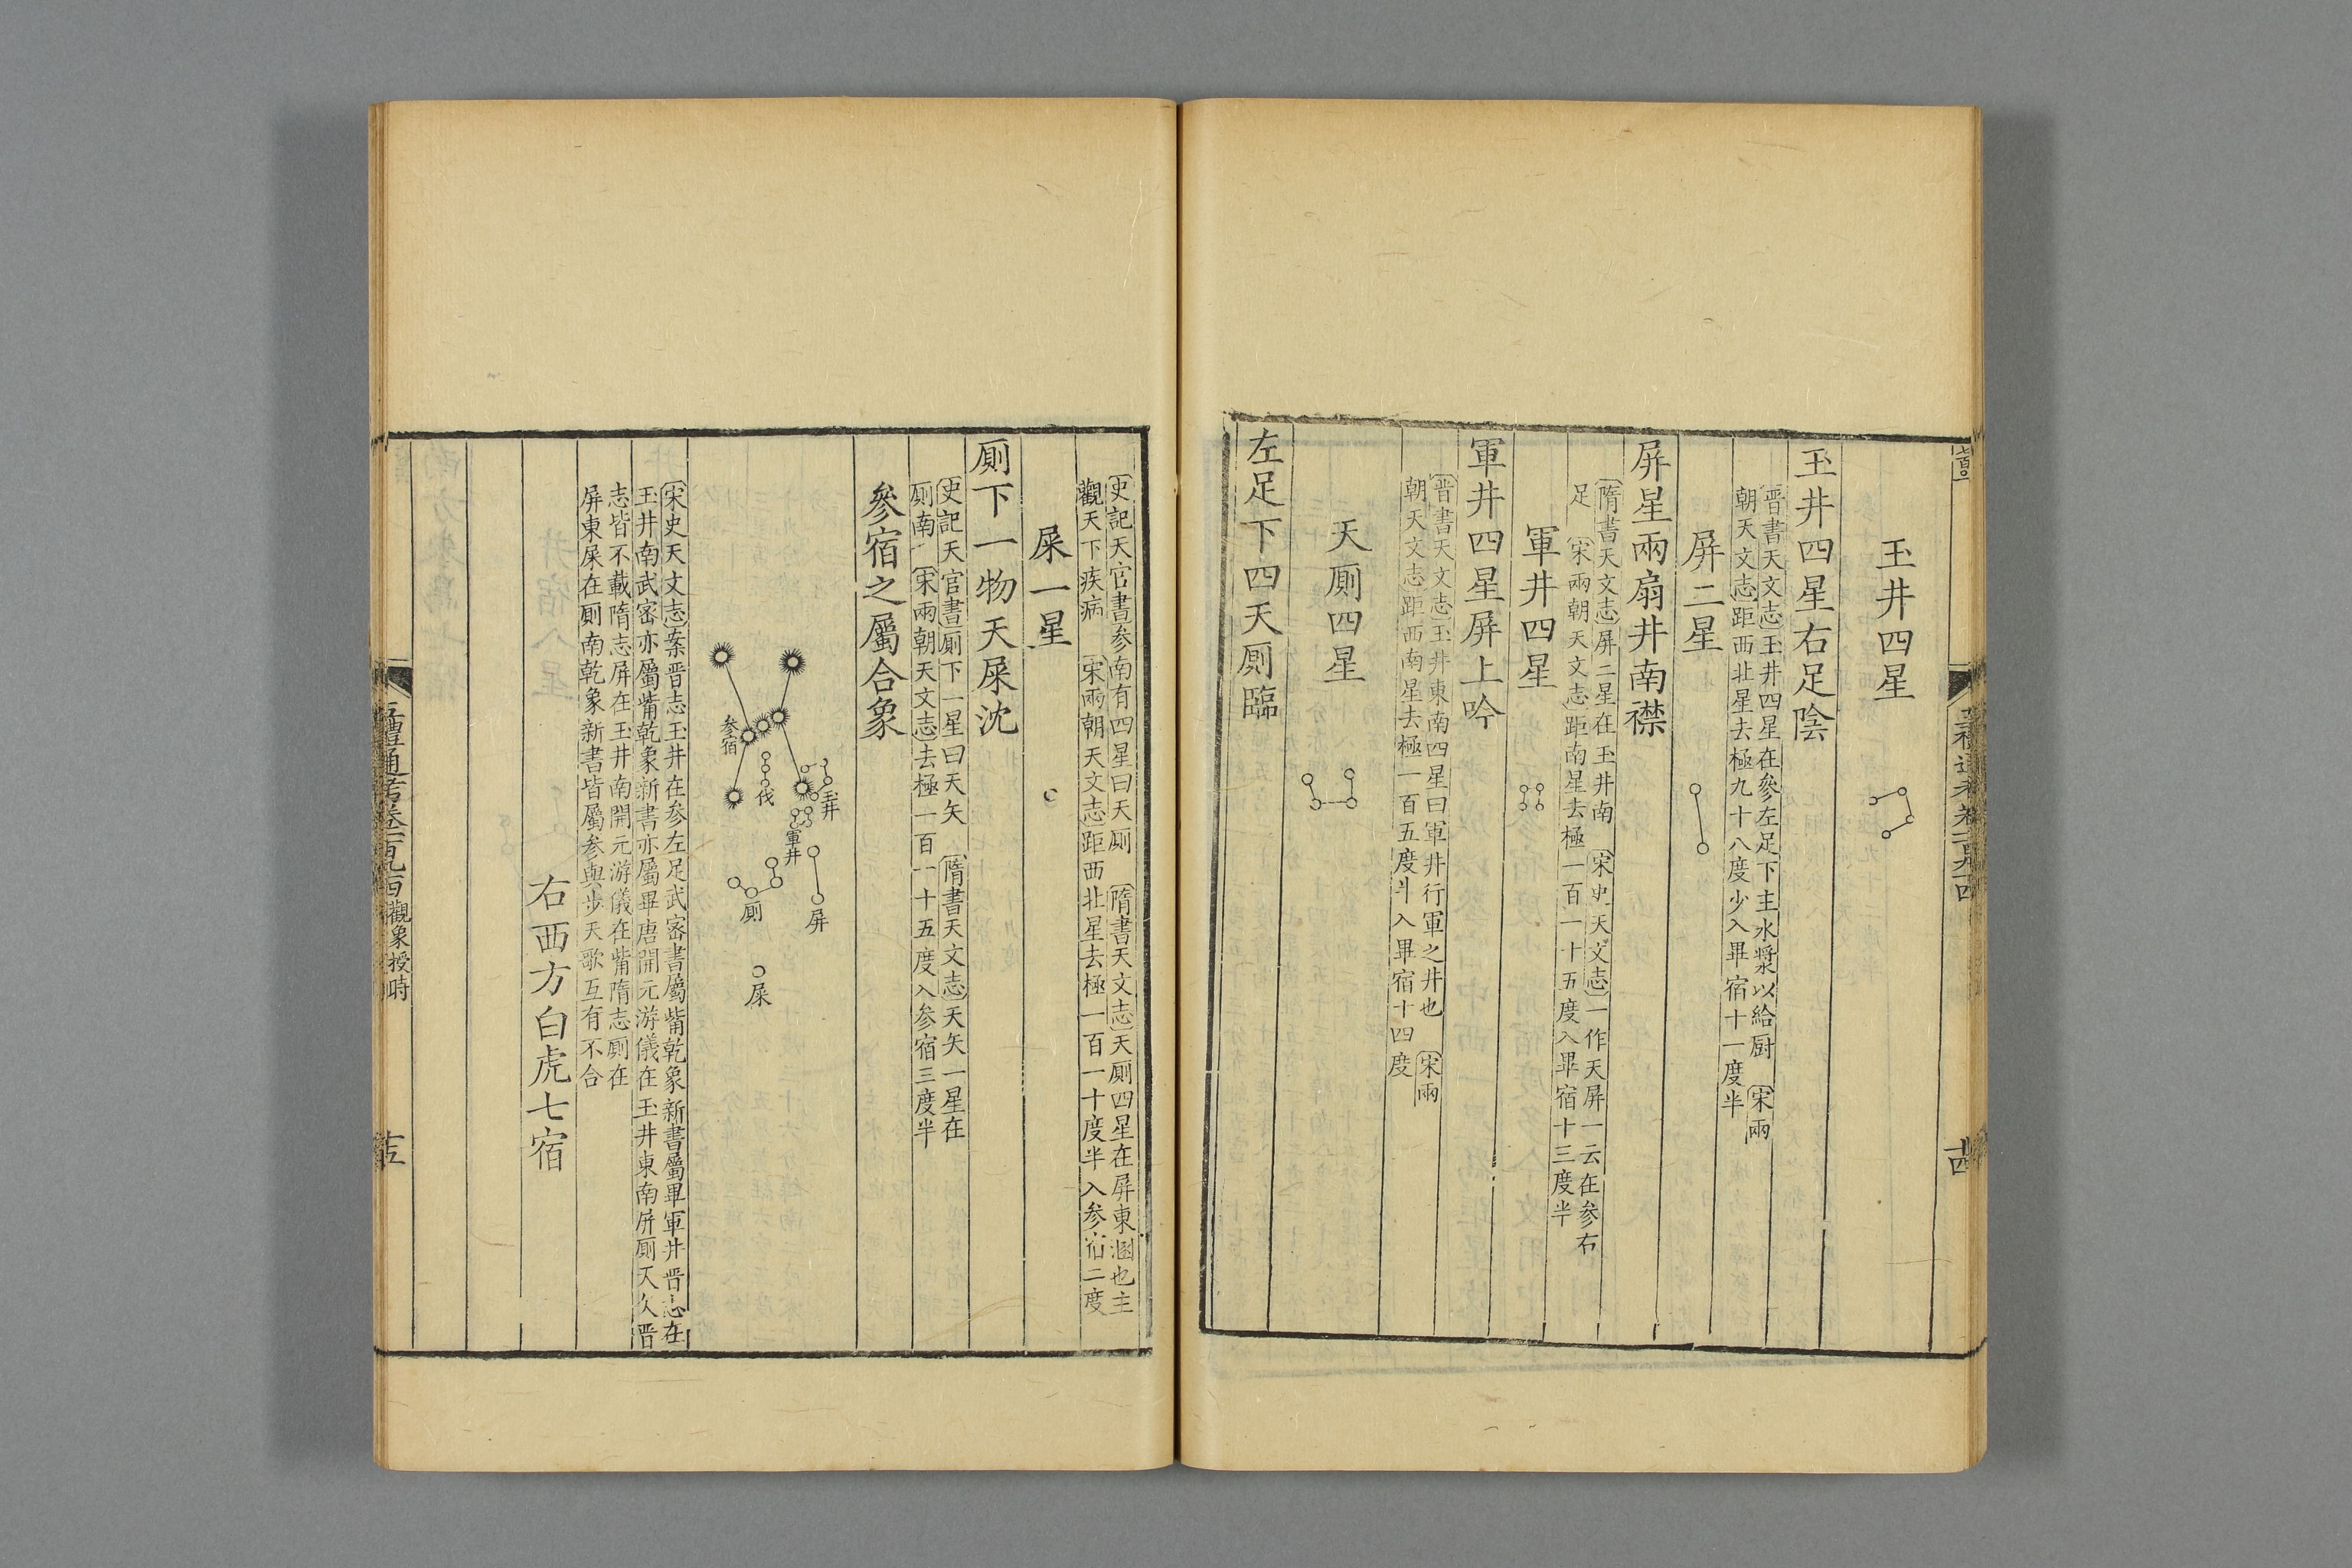 玉井四星
玉井四星右足陰
晋書天文志玉井四星在參左足下主水漿以給厨　宋兩
朝天文志距西北星去極九十八度少入畢宿十一度半
屏二星
屏星兩扇井南襟
隋書天文志屏二星在玉井南　宋史天文志一作天屏一云在参右
足　宋兩朝天文志距南星去極一百一十五度入畢宿十三度半
軍井四星
軍井四星屏上吟
晋書天文志玉井東南四星曰軍井行軍之井也　宋兩
朝天文志距西南星去極一百五度斗入畢宿十四度
天厠四星
左足下四天厠臨
史記天官書参南有四星曰天厠　隋書天文志天厠四星在屏東溷也主
觀天下疾病　宋兩朝天文志距西北星去極一百一十度半入参宿二度
屎一星
厠下一物天屎沈
史記天官書厠下一星曰天矢　隋書天文志天矢一星在
厠南　宋兩朝天文志去極一百一十五度入参宿三度半
參宿之屬合象
参宿
伐
玉井
軍井
屏
厠
屎
宋史天文志案晋志玉井在参左足武密書屬觜乾象新書屬畢軍井晋志在
玉井南武密亦屬觜乾象新書亦屬畢唐開元游儀在玉井東南屏厠天久晋
志皆不載隋志屏在玉井南開元游儀在觜隋志厠在
屏東屎在厠南乾象新書皆屬参與步天歌互有不合
右西方白虎七宿
五禮通考卷一百九十四
觀象授時